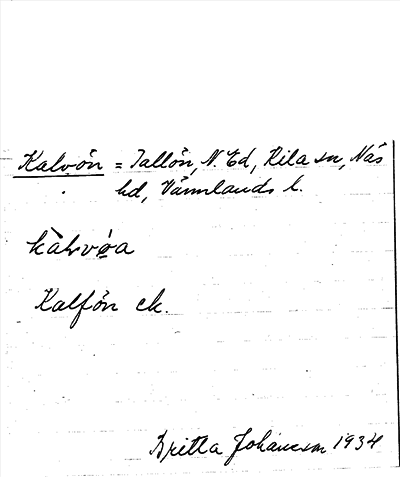 Kalvön = Tallön, N. Ed, Kila sn, Näs
hd, Värmlands l.
kàlvø̀a
Kalfön ek.
Britta Johansson 1934